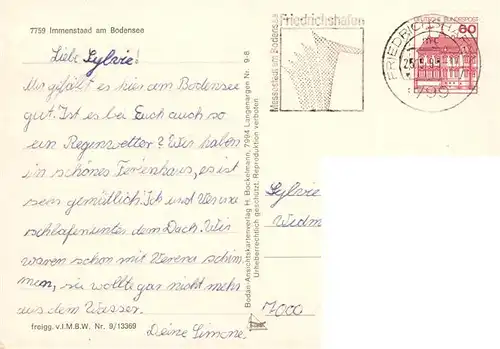 7759 Immenstaad am Bodensee
Liebe Sylvie!
Mir gefällt es hier am Bodensee
gut. Ist es bei Euch auch so
ein Regenwetter? Wir haben
in schönes Ferienhaus, es ist
sehr gemütlich. Ich und Verena
schlafen unter dem Dach. Wir
waren schon mit Verena schwim-
men, sie wollte gar nicht mehr
aus dem Wasser.
Deine Simone.
freigg. v.I.M.B.W. Nr. 9/13369
Bodan-Ansichtskartenverlag H. Bockelmann, 7994 Langenargen Nr. 9-8
Urheberrechtlich geschützt, Reproduktion verboten
Messestadt am Bodensee
Friedrichshafen
FRIEDRICHSHAFEN
799
DEUTSCHE BUNDESPOST
60
Sylvie
Widm
7000